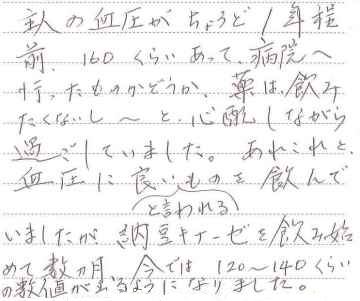 主人の血圧がちょうど1年程
前、160くらいあって、病院へ
行ったものかどうか、薬は飲み
たくないし〜と、心配しながら
過ごしていました。あれこれと、
血圧に良いものを飲んで
と言われる
いましたが納豆キナーゼを飲み始
めて数ヵ月、今では120〜140くらい
の数値が出るようになりました。